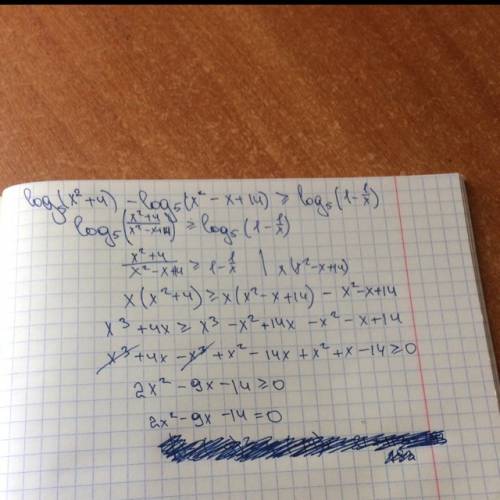 log₅(x²+4) - log₅(x²-x+14) ≥ log₅(1-1/x)
log₅((x²+4)/(x²-x+14)) ≥ log₅(1-1/x)
(x²+4)/(x²-x+14) ≥ 1-1/x | x(x²-x+14)
x(x²+4) ≥ x(x²-x+14) - x²-x+14
x³+4x ≥ x³-x²+14x -x²-x+14
x³+4x-x³+x²-14x+x²+x-14≥0
2x²-9x-14≥0
2x²-9x-14=0